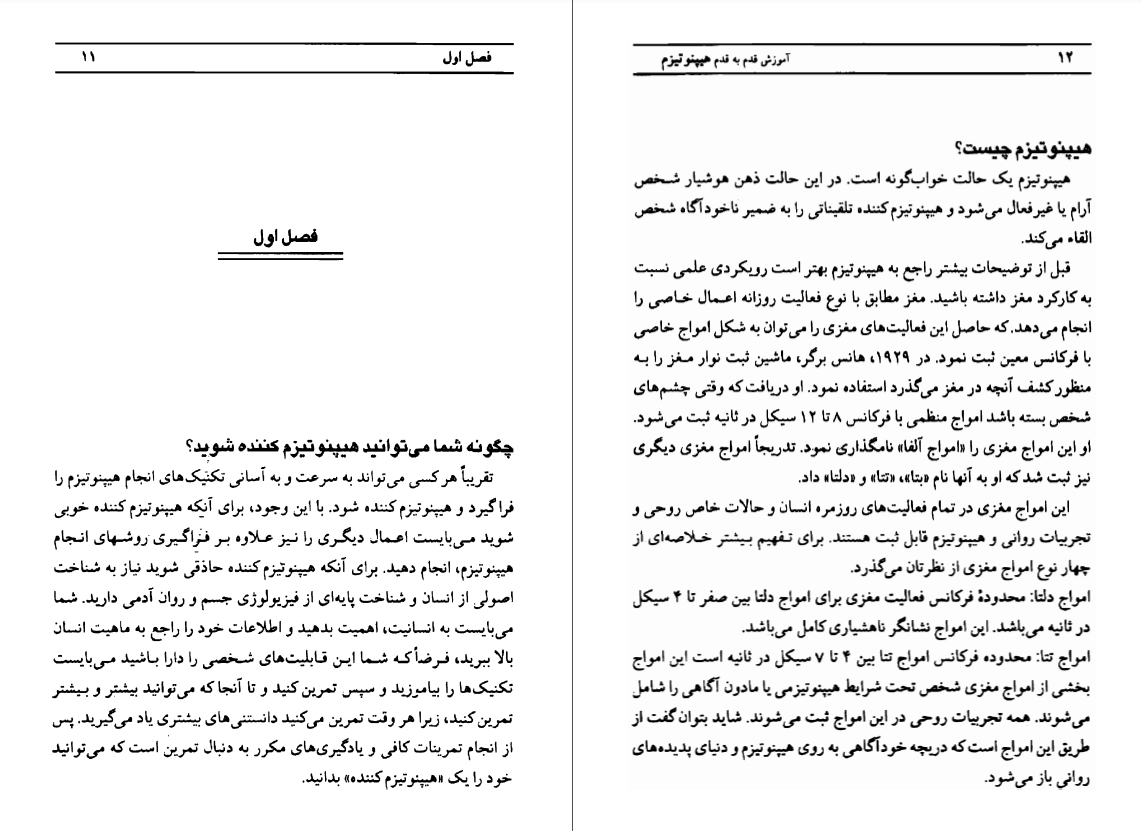 فصل اول ۱۱
فصل اول
چگونه شما می‌توانید هیپنوتیزم کننده شوید؟
تقریباً هر کسی می‌تواند به سرعت و به آسانی تکنیک‌های انجام هیپنوتیزم را
فرا گیرد و هیپنوتیزم کننده شود. با این وجود، برای آنکه هیپنوتیزم کننده خوبی
شوید می‌بایست اعمال دیگری را نیز علاوه بر فراگیری روشهای انجام
هیپنوتیزم، انجام دهید. برای آنکه هیپنوتیزم کننده حاذقی شوید نیاز به شناخت
اصولی از انسان و شناخت پایه‌ای از فیزیولوژی جسم و روان آدمی دارید. شما
می‌بایست به انسانیت، اهمیت بدهید و اطلاعات خود را راجع به ماهیت انسان
بالا ببرید، فرضاً که شما این قابلیت‌های شخصی را دارا باشید می‌بایست
تکنیک‌ها را بیاموزید و سپس تمرین کنید و تا آنجا که می‌توانید بیشتر و بیشتر
تمرین کنید، زیرا هر وقت تمرین می‌کنید دانستنی‌های بیشتری یاد می‌گیرید. پس
از انجام تمرینات کافی و یادگیری‌های مکرر به دنبال تمرین است که می‌توانید
خود را یک «هیپنوتیزم کننده» بدانید.
۱۲ آموزش قدم به قدم هیپنوتیزم
هیپنوتیزم چیست؟
هیپنوتیزم یک حالت خواب‌گونه است. در این حالت ذهن هوشیار شخص
آرام یا غیرفعال می‌شود و هیپنوتیزم‌کننده تلقیناتی را به ضمیر ناخودآگاه شخص
القاء می‌کند.
قبل از توضیحات بیشتر راجع به هیپنوتیزم بهتر است رویکردی علمی نسبت
به کارکرد مغز داشته باشید. مغز مطابق با نوع فعالیت روزانه اعمال خاصی را
انجام می‌دهد. که حاصل این فعالیت‌های مغزی را می‌توان به شکل امواج خاصی
با فرکانس معین ثبت نمود. در ۱۹۲۹، هانس برگر، ماشین ثبت نوار مغز را به
منظور کشف آنچه در مغز می‌گذرد استفاده نمود. او دریافت که وقتی چشم‌های
شخص بسته باشد امواج منظمی با فرکانس ۸ تا ۱۲ سیکل در ثانیه ثبت می‌شود.
او این امواج مغزی را «امواج آلفا» نامگذاری نمود. تدریجاً امواج مغزی دیگری
نیز ثبت شد که او به آنها نام «بتا»، «تتا» و «دلتا» داد.
این امواج مغزی در تمام فعالیت‌های روزمره انسان و حالات خاص روحی و
تجربیات روانی و هیپنوتیزم قابل ثبت هستند. برای تفهیم بیشتر خلاصه‌ای از
چهار نوع امواج مغزی از نظرتان می‌گذرد.
امواج دلتا: محدودهٔ فرکانس فعالیت مغزی برای امواج دلتا بین صفر تا ۴ سیکل
در ثانیه می‌باشد. این امواج نشانگر ناهشیاری کامل می‌باشد.
امواج تتا: محدوده فرکانس امواج تتا بین ۴ تا ۷ سیکل در ثانیه است این امواج
بخشی از امواج مغزی شخص تحت شرایط هیپنوتیزمی یا مادون آگاهی را شامل
می‌شوند. همه تجربیات روحی در این امواج ثبت می‌شوند. شاید بتوان گفت از
طریق این امواج است که دریچه خودآگاهی به روی هیپنوتیزم و دنیای پدیده‌های
روانی باز می‌شود.